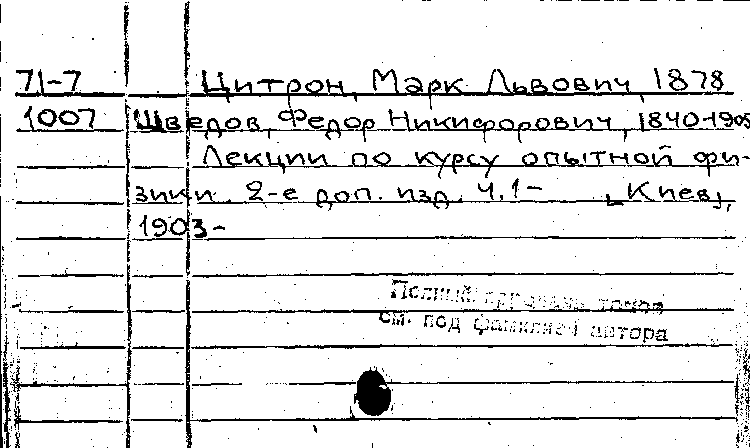 71-7 Цитрон, Марк Львович, 1878
1007 Шведов, Федор Никифорович, 1840-1905
Лекции по курсу опытной фи-
зики. 2-е доп. изд. Ч.1- [Киев],
1903-
Полный перечень томов
см. под фамилией автора